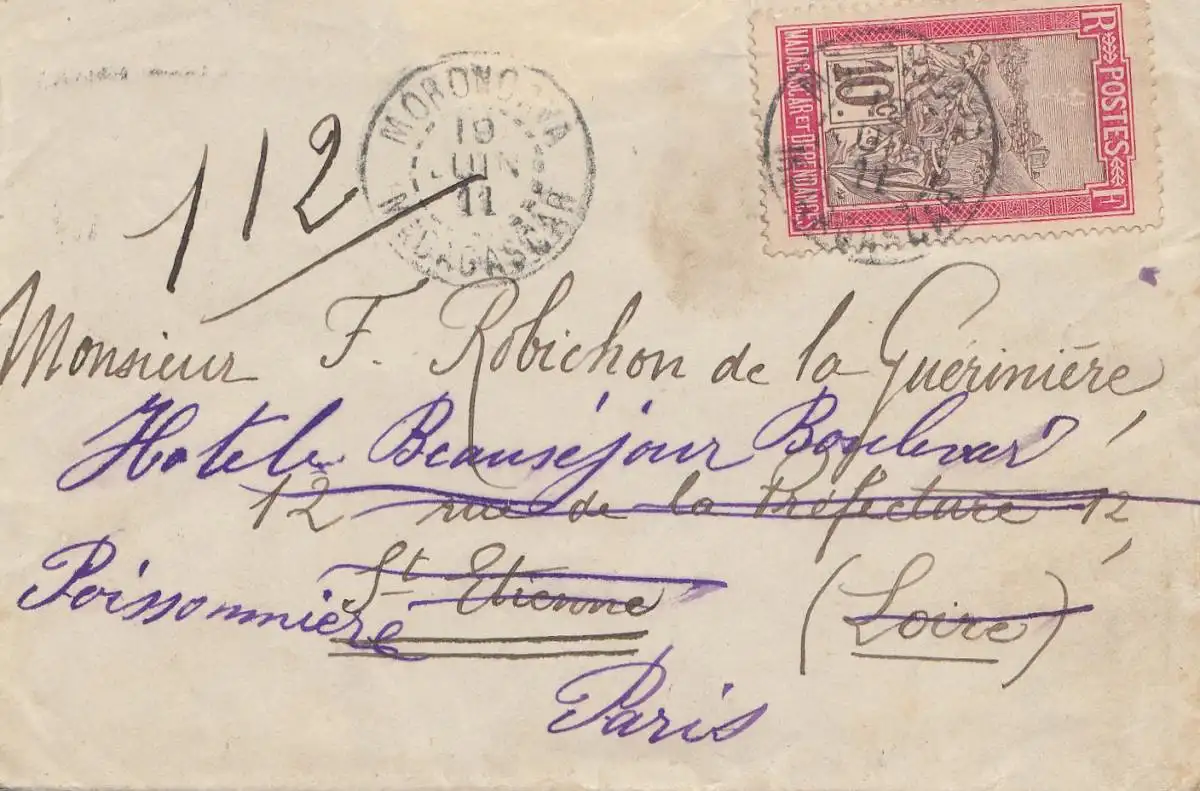 MORONDAVA
19
JUIN
11
MADAGASCAR
R POSTES F
10c
MADAGASCAR ET DÉPENDANCES
112
Monsieur F. Robichon de la Guérinière,
Hotel Beauséjour Boulevard
12 rue de la Préfecture 12,
Poissonnière
St Etienne (Loire)
Paris